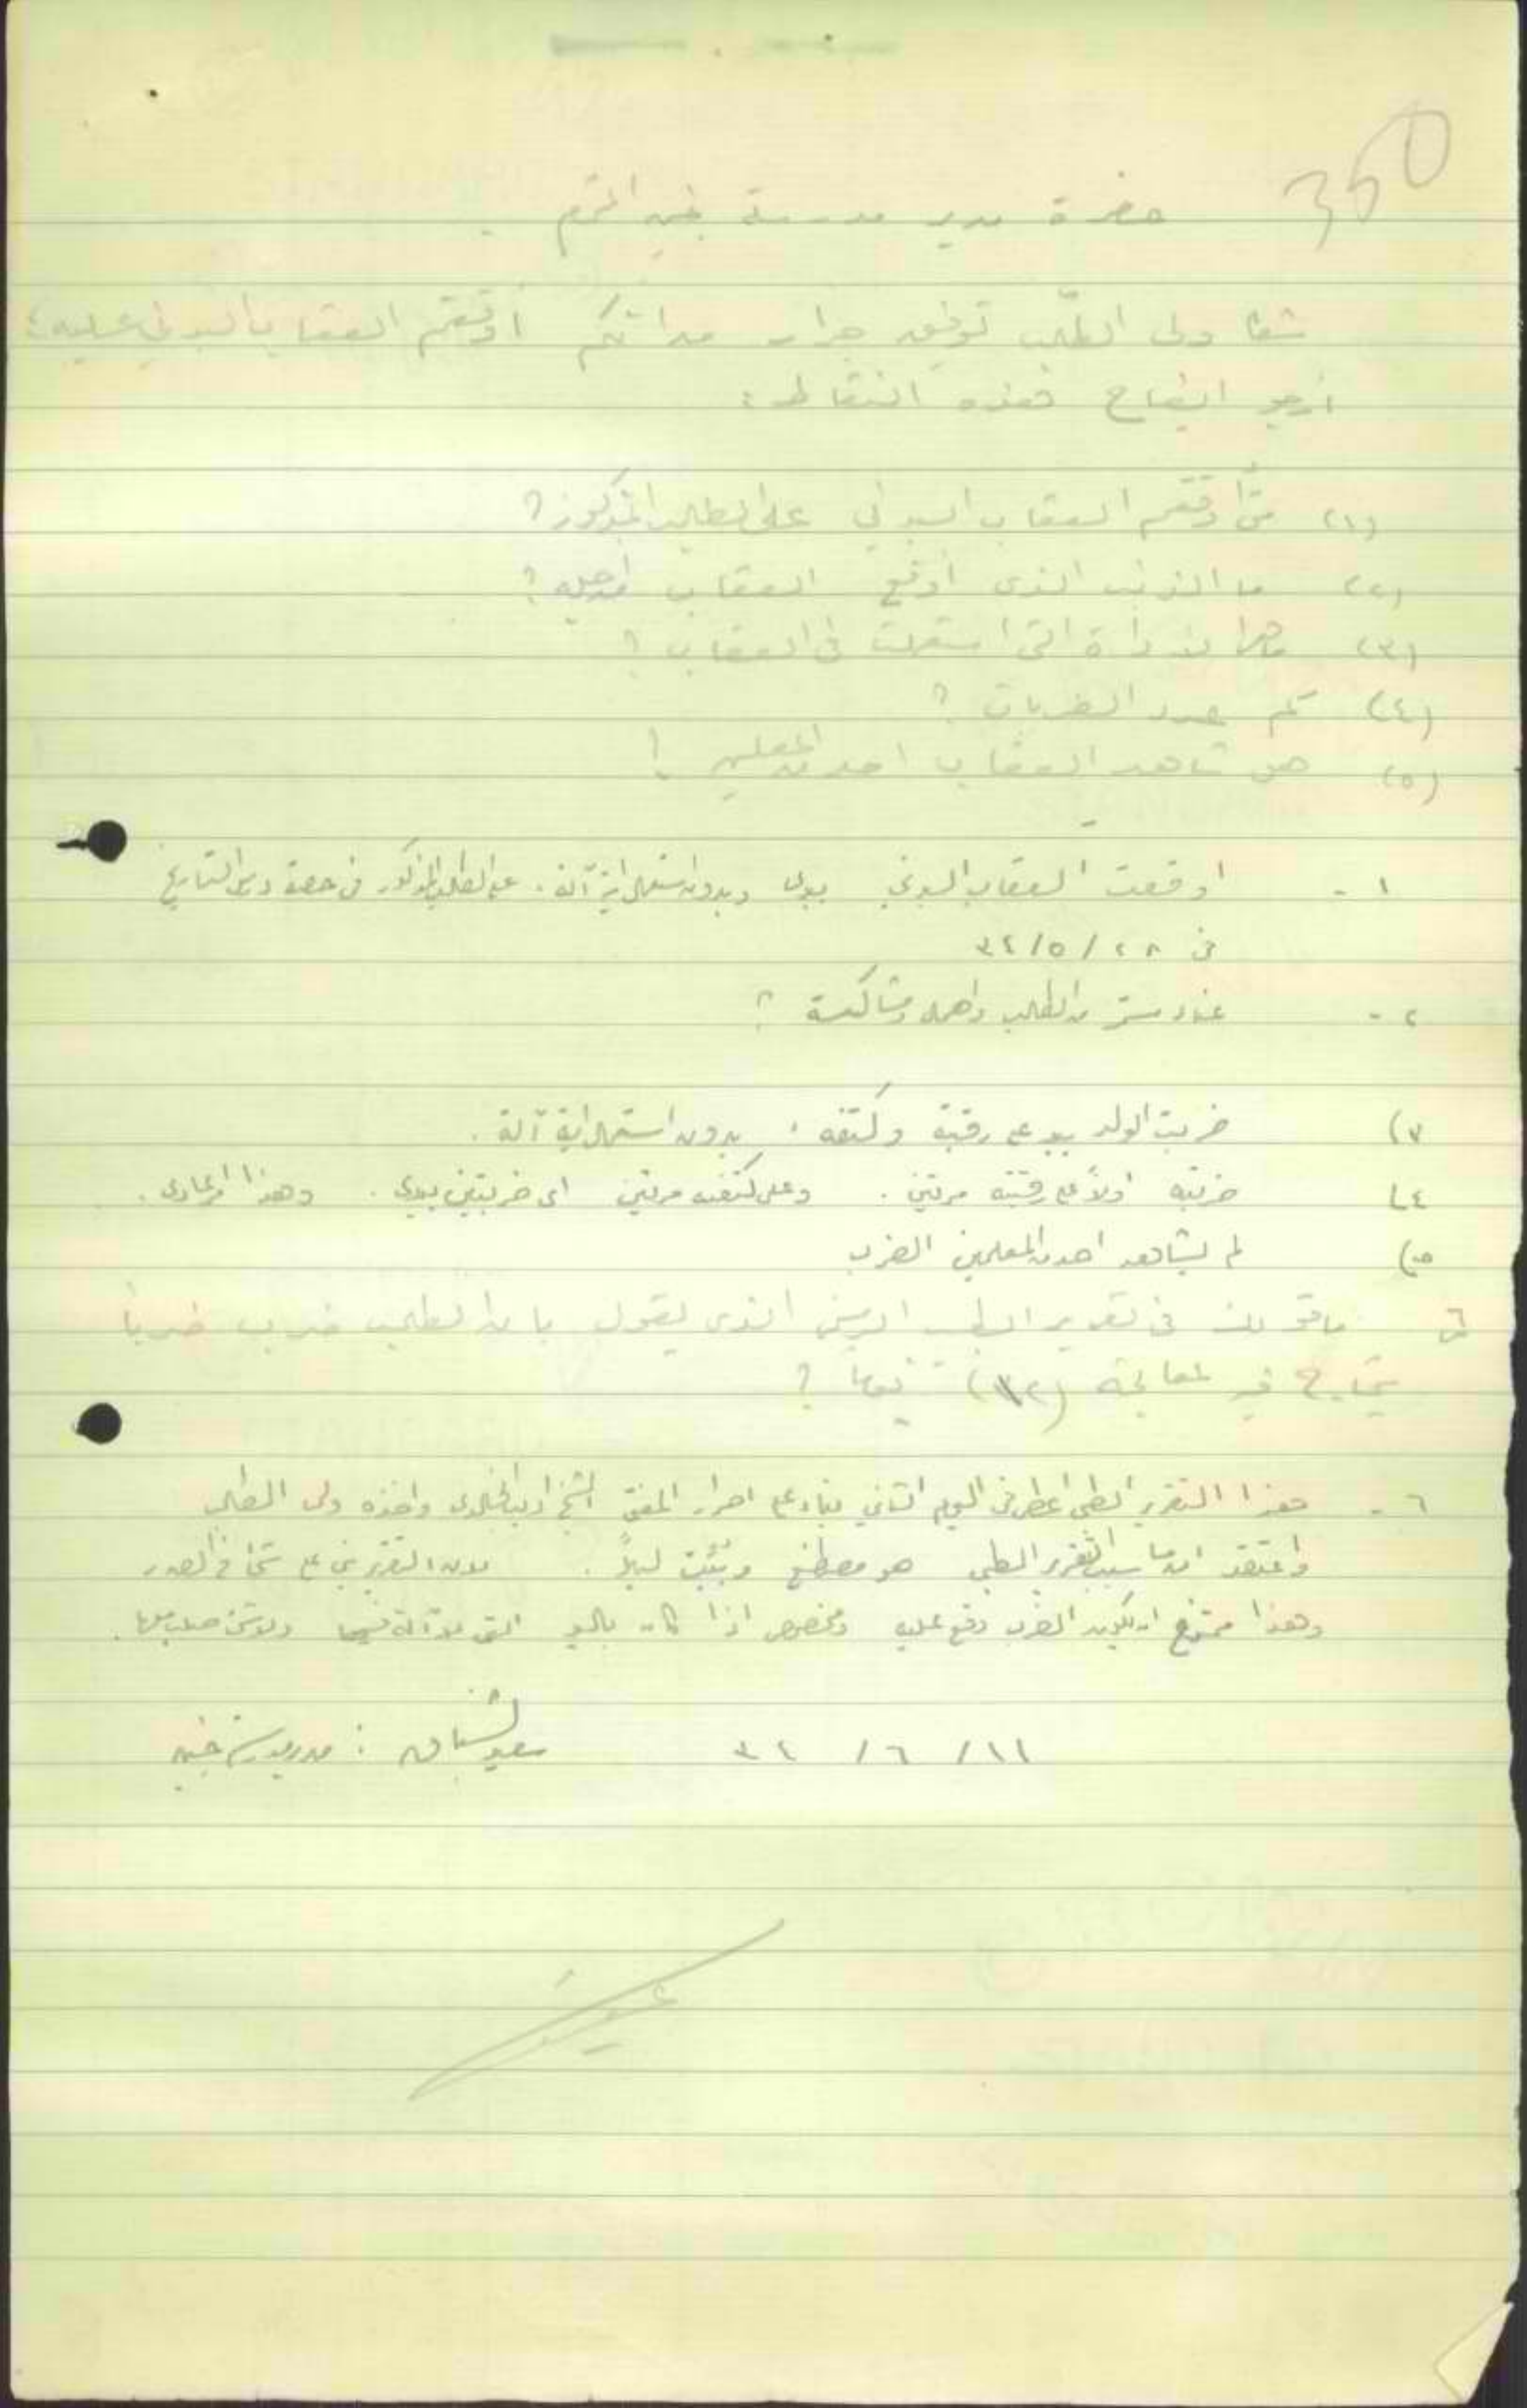 350
حضرة مدير مدرسة جنين المحترم
شكا ولى الطالب توفيق جرار من انكم اوقعتم العقاب البدني عليه؛
أرجو ايضاح هذه النقاط:
(١) متى أوقعتم العقاب البدني على الطالب المذكور؟
(٢) ما الذنب الذى أوقع العقاب لاجله؟
(٣) ما هى الاداة التى استعملت فى العقاب؟
(٤) كم عدد الضربات؟
(٥) هل شاهد العقاب احد من المعلمين؟
١ - اوقعت العقاب البدني بيدى وبدون استعمال اية آلة. على الطالب المذكور في حصة درس التاريخ
في ٢٨ / ٥ / ٣٤
٢ - عناد مستمر من الطالب واهمال ومشاكسة
٣) ضربت الولد بيدى على رقبته وكتفه، بدون استعمال اية آلة.
٤) ضربته اولاً على رقبته مرتين. وعلى كتفه مرتين اى ضربتين بيدى. وهذا امر عادى.
٥) لم يشاهد احد من المعلمين الضرب
٦ ما قولك فى تقرير الطبيب الذى يقول بان الطالب ضرب ضرباً
يحتاج في معالجته (١٢) يوما؟
٦ - هذا التقرير الطبى اعطى في اليوم الثاني بناء على اصرار المفتى الشيخ اديب الخالدى واخذه ولى الطالب
واعتقد ان سبب التقرير الطبى هو مصطنع وبُيِّت ليلاً. لان التقرير بني على شئ في الصدر
وهذا ممتنع ان يكون الضرب وقع عليه وبخصوص اذا كان باليد التى لا آلة فيها
١١ / ٦ / ٣٤ سعيد الصباغ: مدير مدرسة جنين